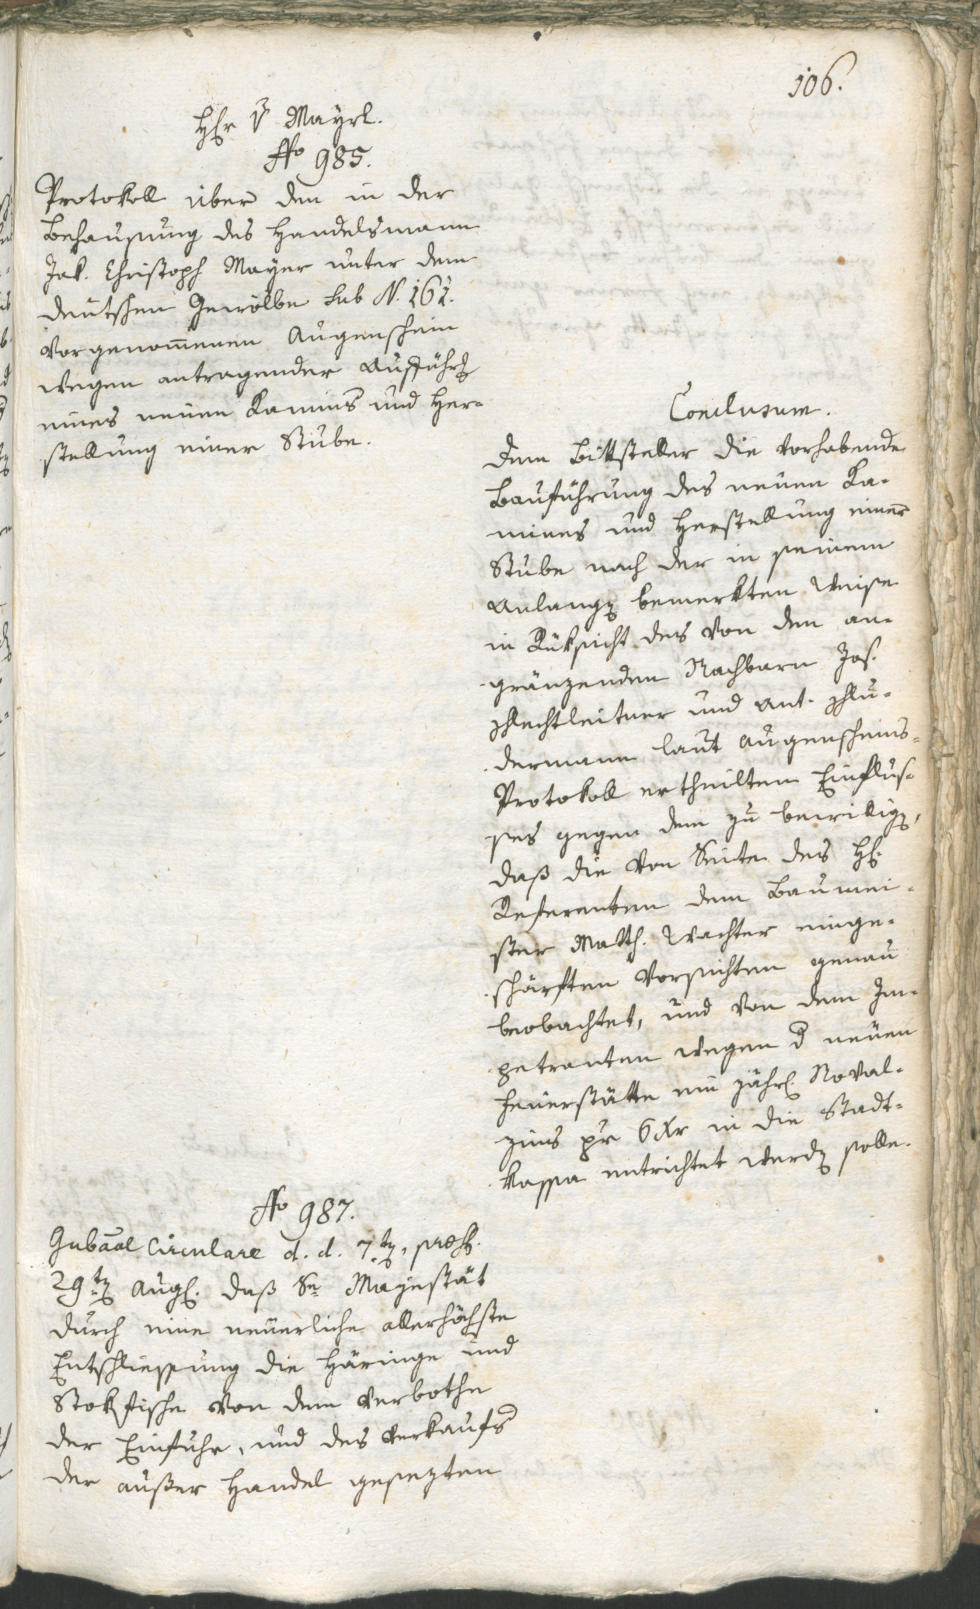 106.
Hr v Mayrl.
No 985.
Protokoll über den in der
Behausung des Handelsmann
Jak. Christoph Mayer unter dem
deutschen Gewölbe sub N. 161.
vorgenom̅enen Augenschein
wegen antragender Ausführg
eines neuen Kamins und Her=
stellung einer Stube.
Conclusum.
Dem Bittsteller die vorhabende
Bauführung des neuen Ka-
mines und Herstellung einer
Stube nach der in seinem
Anlangen bemerkten Weise
in Rüksicht des von den an-
gränzenden Nachbarn Jos.
Schlechtleitner und Ant. Schlu-
dermann laut Augenscheins=
Protokoll ertheilten Einflus-
ses gegen dem zu bewilligen,
daß die von Seite des H.
Referenten dem Baumei-
ster Matth. Wachter einge-
schärften Vorsichten genau
beobachtet, und von dem Im-
petranten wegen d neuen
Feuerstätte ein jährl. Noval-
zins pr 6 Xr in die Stadt-
kassa entrichtet werden solle.
No 987.
Gubāal Circulare d. d. 7ten, præs.
29ten Aug. daß Se Majestät
durch eine neuerliche allerhöchste
Entschliessung die Häringe und
Stokfische von dem Verbothe
der Einfuhr, und des Verkaufs
der außer Handel gesezten